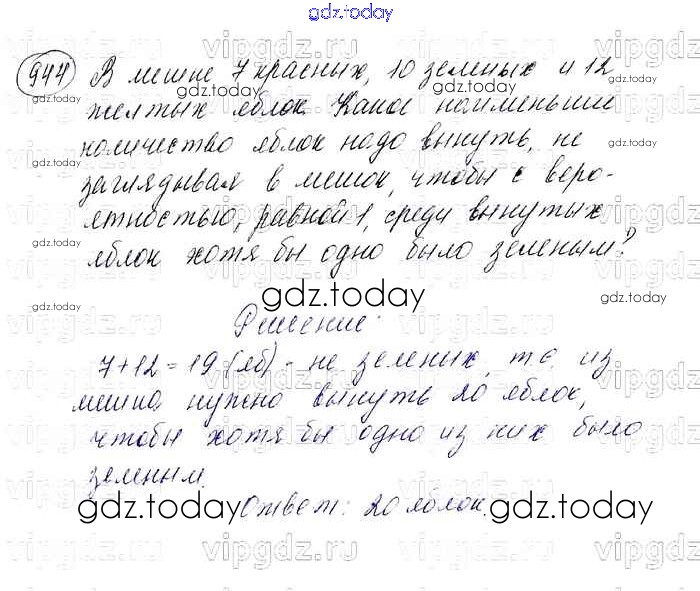 gdz.today
944 В мешке 7 красных, 10 зеленых и 12
желтых яблок. Какое наименьшее
количество яблок надо вынуть, не
заглядывая в мешок, чтобы с веро-
ятностью, равной 1, среди вынутых
яблок хотя бы одно было зеленым?
gdz.today
Решение:
7+12=19 (яб) - не зеленых, т.е. из
мешка нужно вынуть 20 яблок,
чтобы хотя бы одно из них было
зеленым.
gdz.today Ответ: 20 яблок. gdz.today
vipgdz.ru